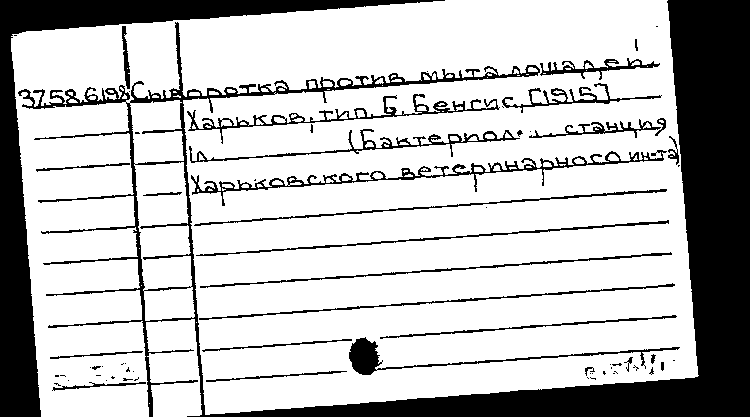 37.58.6198 Сыворотка против мыта лошадей.
Харьков, тип. Б. Бенгис, [1915].
1л. (Бактериол. станция
Харьковского ветеринарного ин-та)